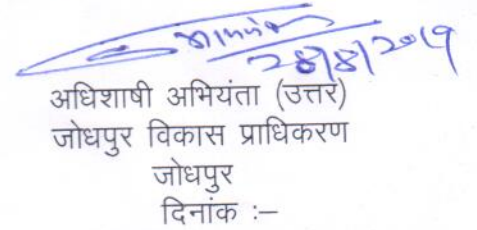 28/8/2019
अधिशाषी अभियंता (उत्तर)
जोधपुर विकास प्राधिकरण
जोधपुर
दिनांक :–